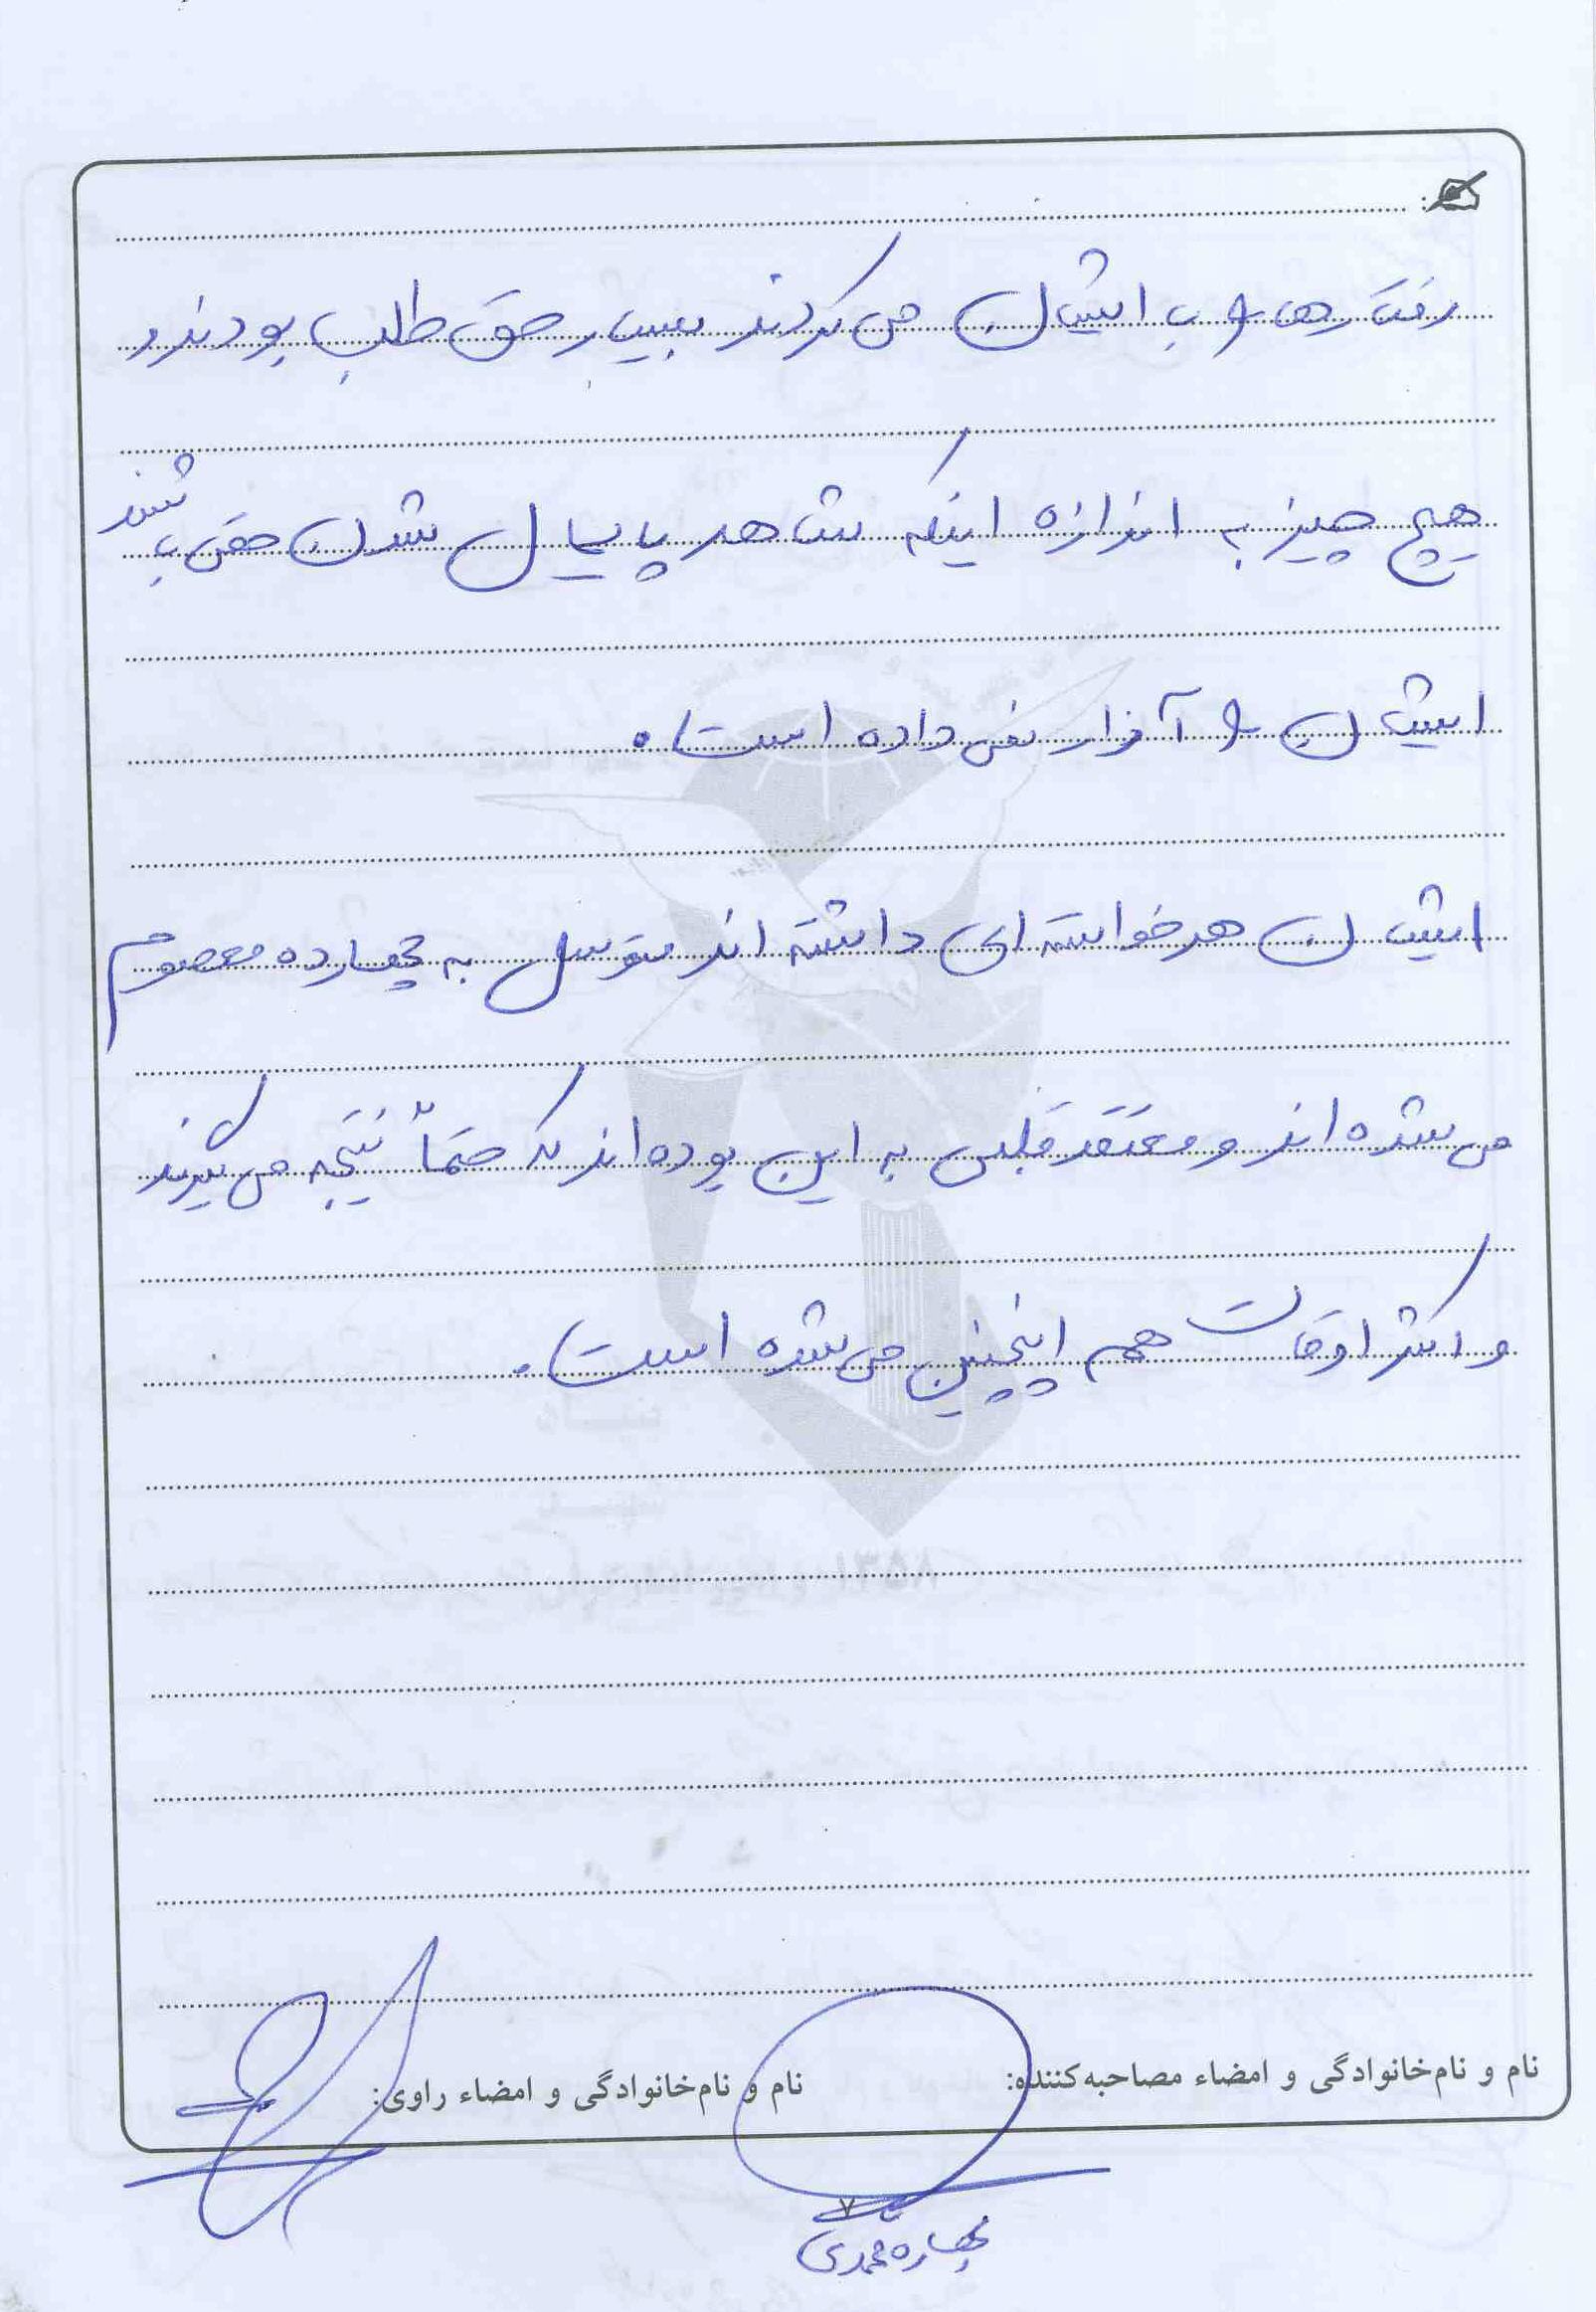 رفتارها را با ایشان می کردند بسیار حق طلب بودند و
هیچ چیز به اندازه اینکه شاهد پایمال شدن حقی باشند
ایشان را آزار نمی داده است.
ایشان هر خواسته ای داشته اند متوسل به چهارده معصوم
می شده اند و معتقد قلبی به این بوده اند که حتماً نتیجه می گیرند
و اکثر اوقات هم اینچنین می شده است.
نام و نام‌خانوادگی و امضاء مصاحبه‌کننده:
نام و نام‌خانوادگی و امضاء راوی:
۷
بهاره محمدی